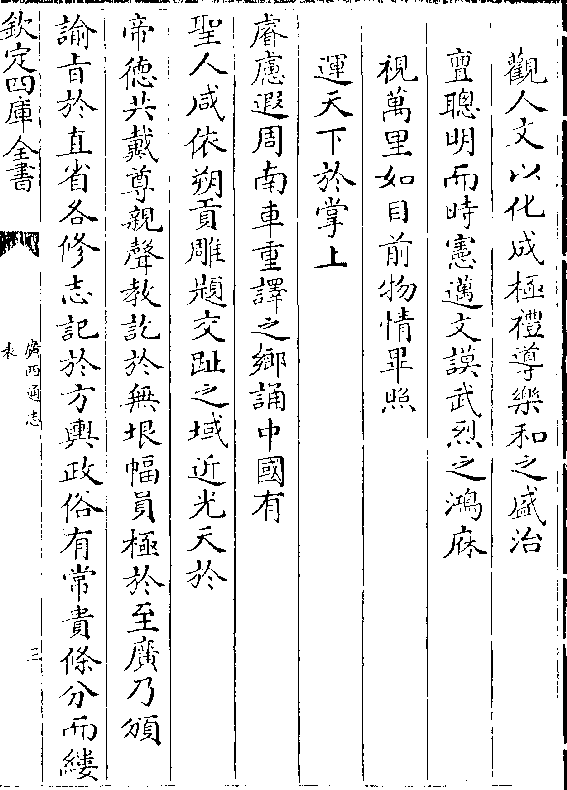 觀人文以化成極禮導樂和之盛治
亶聰明而時憲邁文謨武烈之鴻庥
視萬里如目前物情畢照
運天下於掌上
睿慮遐周南車重譯之鄉誦中國有
聖人咸依朔貢雕題交趾之域近光天於
帝德共戴尊親聲教訖於無垠幅員極於至廣乃頒
諭㫖於直省各修志記於方輿政俗有常貴條分而縷
欽定四庫全書
廣西通志
表
三